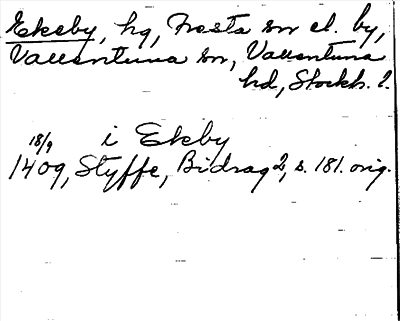 Ekeby, hg, Frösta sn el. by,
Vallentuna sn, Vallentuna
hd, Stockh. l.
18/9 i Ekby
1409, Styffe, Bidrag 2, s. 181. orig.